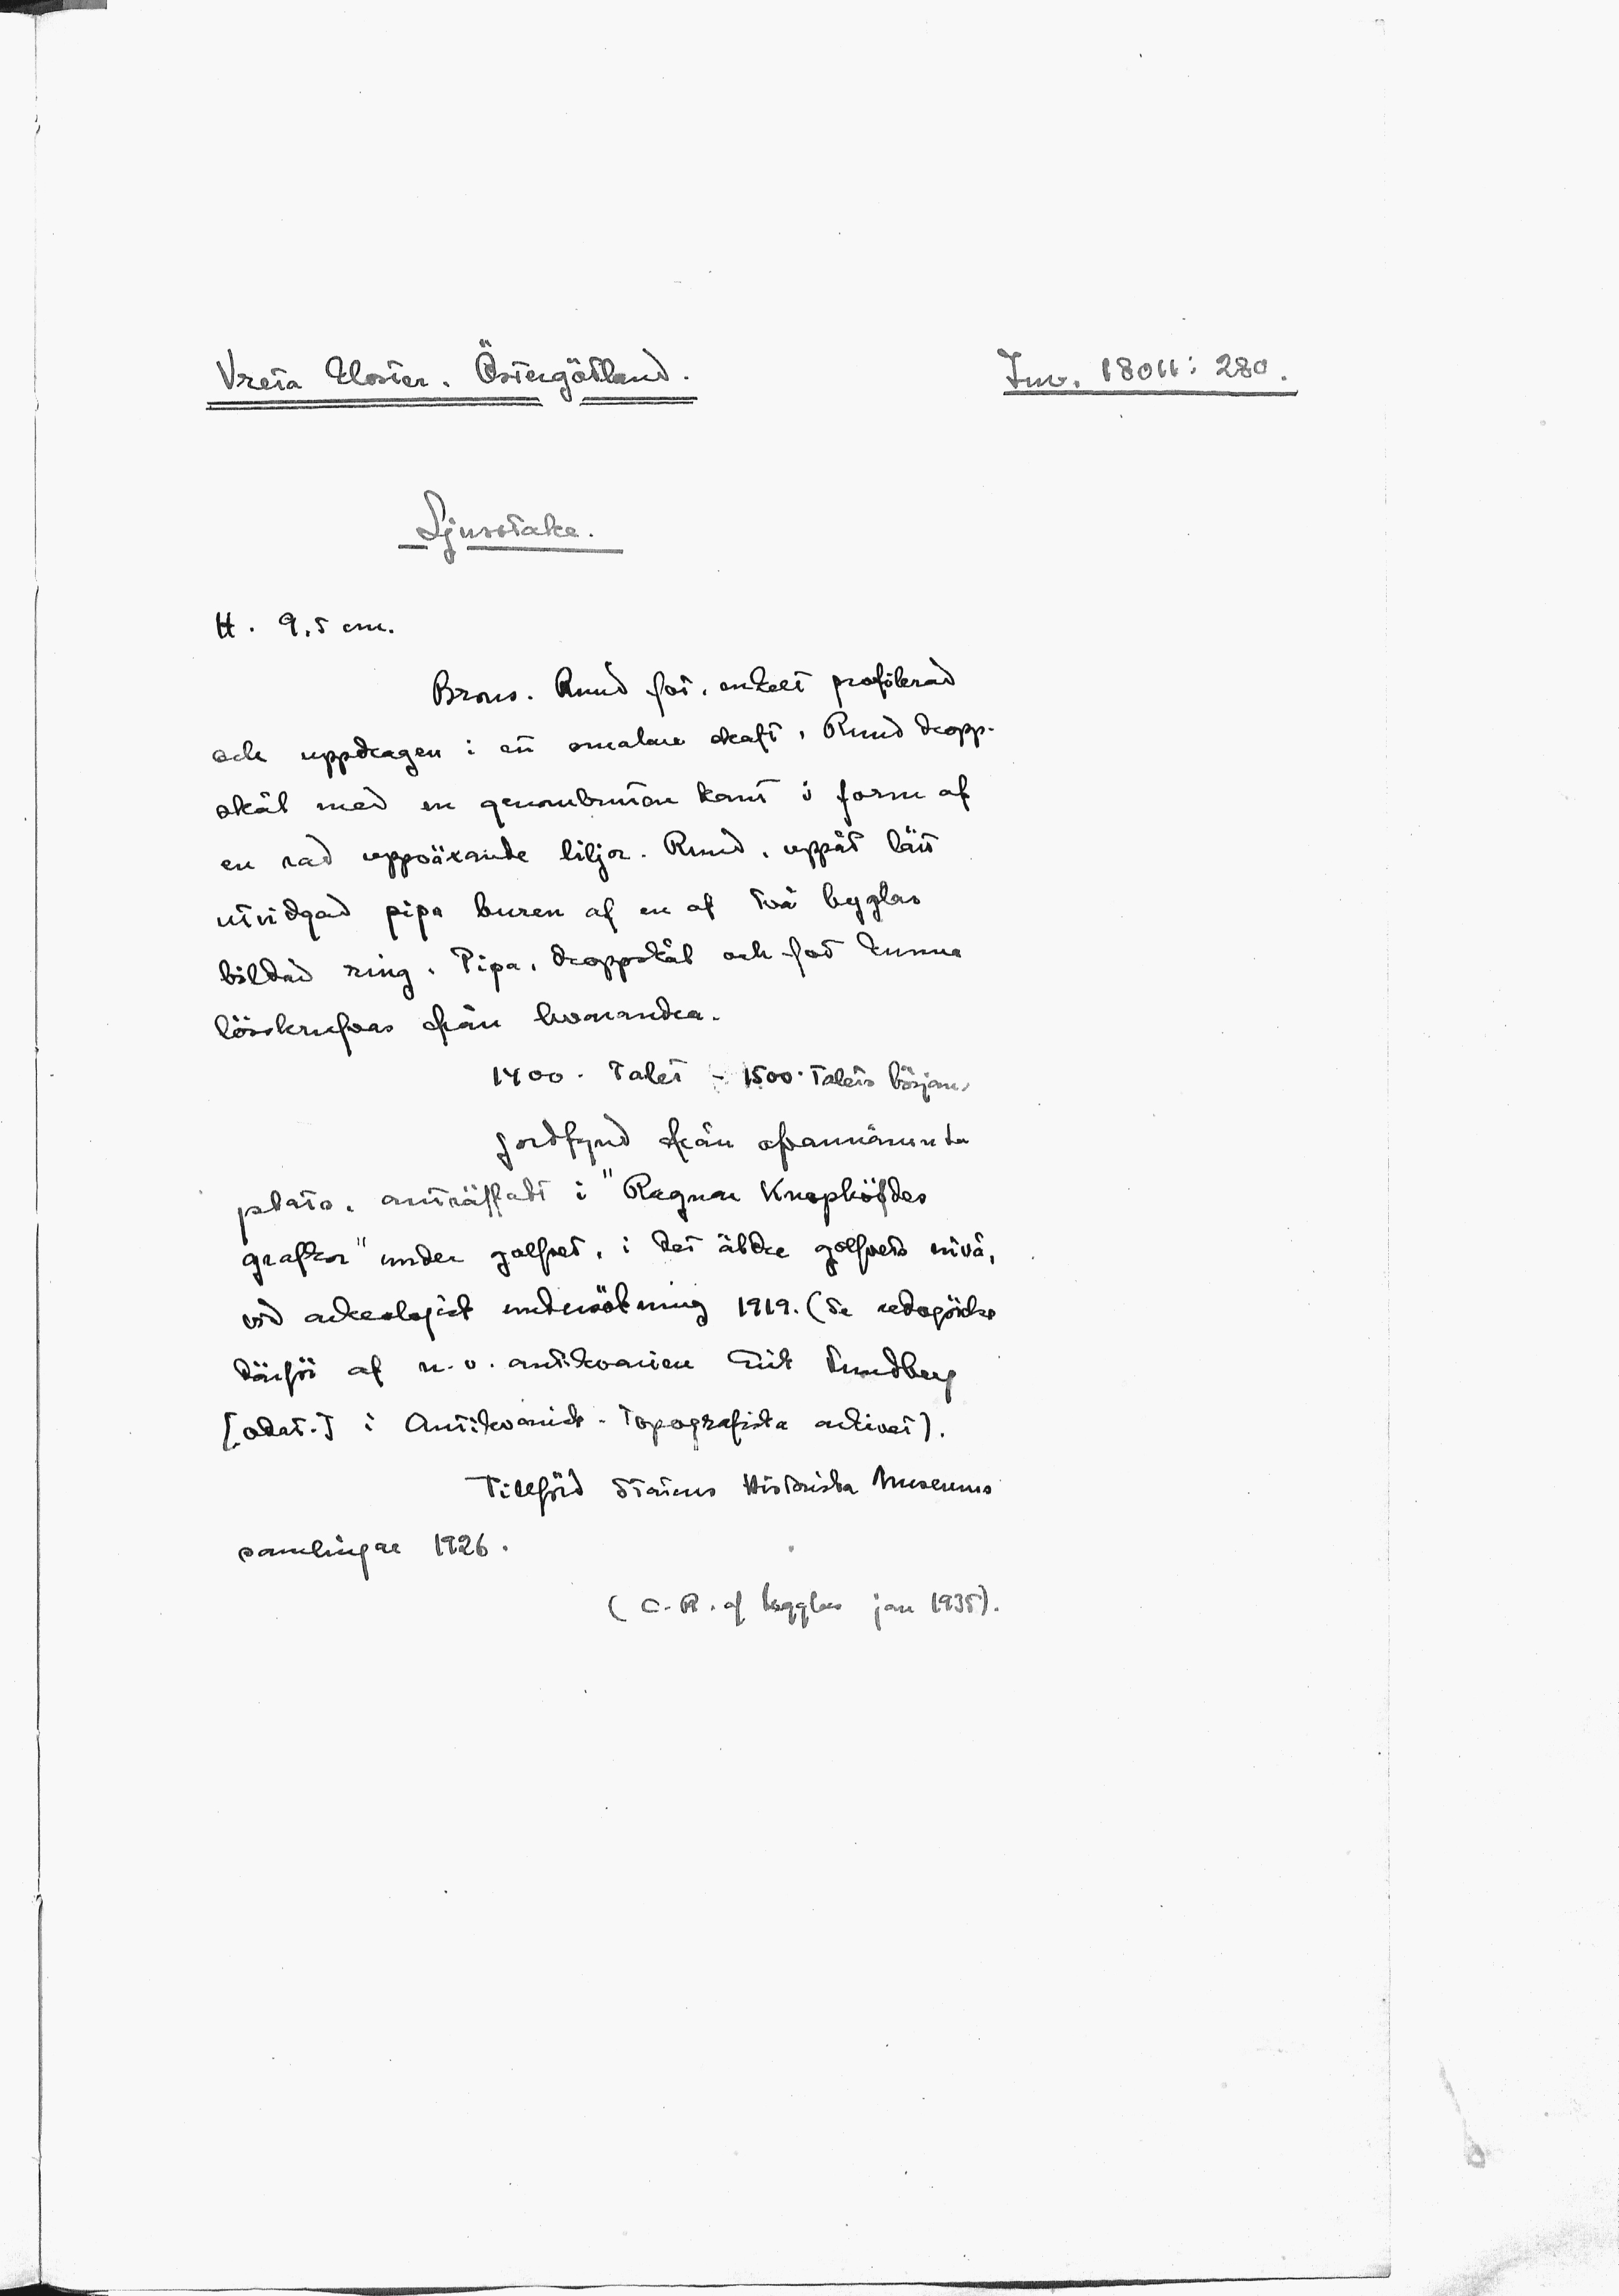 Vreta Kloster. Östergötland.
Inv. 18011:280.
Ljusstake.
H. 9,5 cm.
Brons. Rund fot, enkelt profilerad
och uppdragen i ett smalare skaft. Rund dropp-
skål med en genombruten kant i form af
en rad uppväxande liljor. Rund, uppåt lätt
utvidgad pipa buren af en af två byglar
bildad ring. Pipa, droppskål och fot kunna
lösskrufvas från hvarandra.
1400-talet - 1500-talets början.
Jordfynd från ofvannämnda
plats, anträffadt i "Ragnar Knaphöfdes
grafkor" under golfvet, i det äldre golfvets nivå,
vid arkeologisk undersökning 1919. (Se redogörelse
därför af n.v. antikvarien Erik Lundberg
[odat.] i Antikvarisk-Topografiska arkivet).
Tillförd Statens Historiska Museums
samlingar 1926.
(C. R. af Ugglas jan 1935).